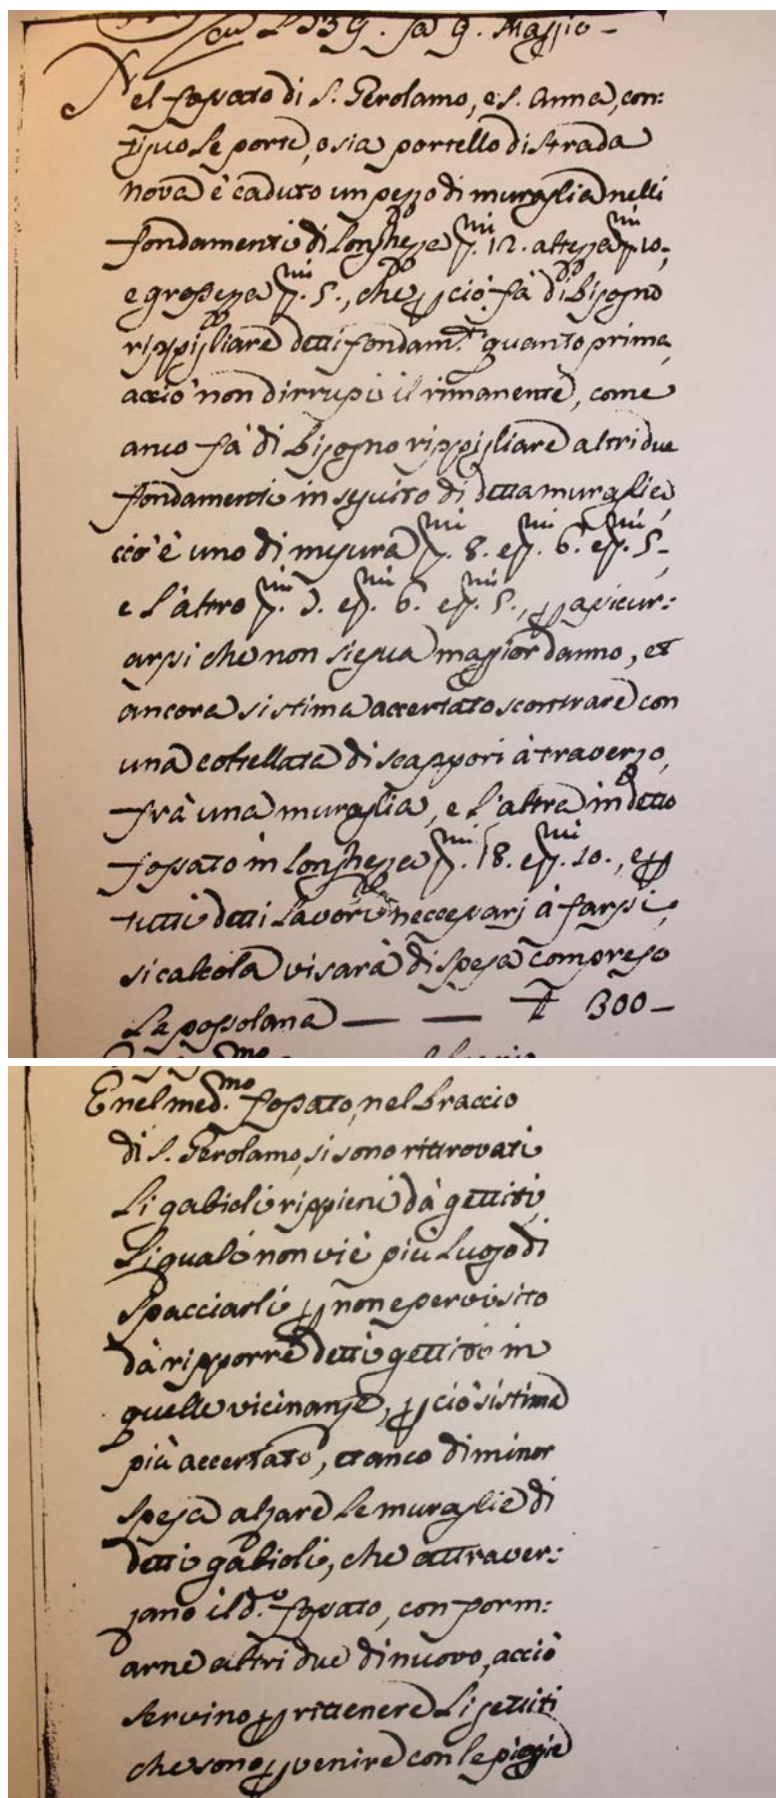 1739. a 9. Maggio –
Nel fossato di S. Gerolamo, e S. Anna, con:
tiguo le porte, o sia portello di strada
nova è caduto un pezzo di muraglia nelli
fondamenti di longhezza p.mi 12. altezza p.mi 10.,
e grossezza p.mi 5., che per ciò fà di bisogno
rippigliare detti fondam.ti quanto prima,
acciò non dirrupi il rimanente, come
anco fà di bisogno rippigliare altri due
fondamenti in seguito di detta muraglia,
cio'è uno di misura p.mi 8. e p.mi 6. e p.mi 5.,
e l'altro p.mi 3. e p.mi 6. e p.mi 5., per assicur:
arsi che non siegua maggior danno, et
ancora si stima accertato scontrare con
una coltellata di scappori à traverso,
frà una muraglia, e l'altra in detto
fossato in longhezza p.mi 18. e p.mi 10., e per
tutti detti lavori neccessarj à farsi,
si calcola vi sarà di spesa compreso
la possolana — — £ 300 –
E nel med.mo fossato, nel braccio
di S. Gerolamo, si sono rittrovati
li gabioli rippieni dà gettiti,
li quali non vi è più luogo di
spacciarli per non esservi sito
dà ripporre detti gettiti in
quelle vicinanze, per ciò si stima
più accertato, et anco di minor
spesa alzare le muraglie di
detti gabioli, che attraver:
sano il d.o fossato, con form:
arne altri due di nuovo, acciò
servino per rittenere li gettiti
che sono per venire con le piogie